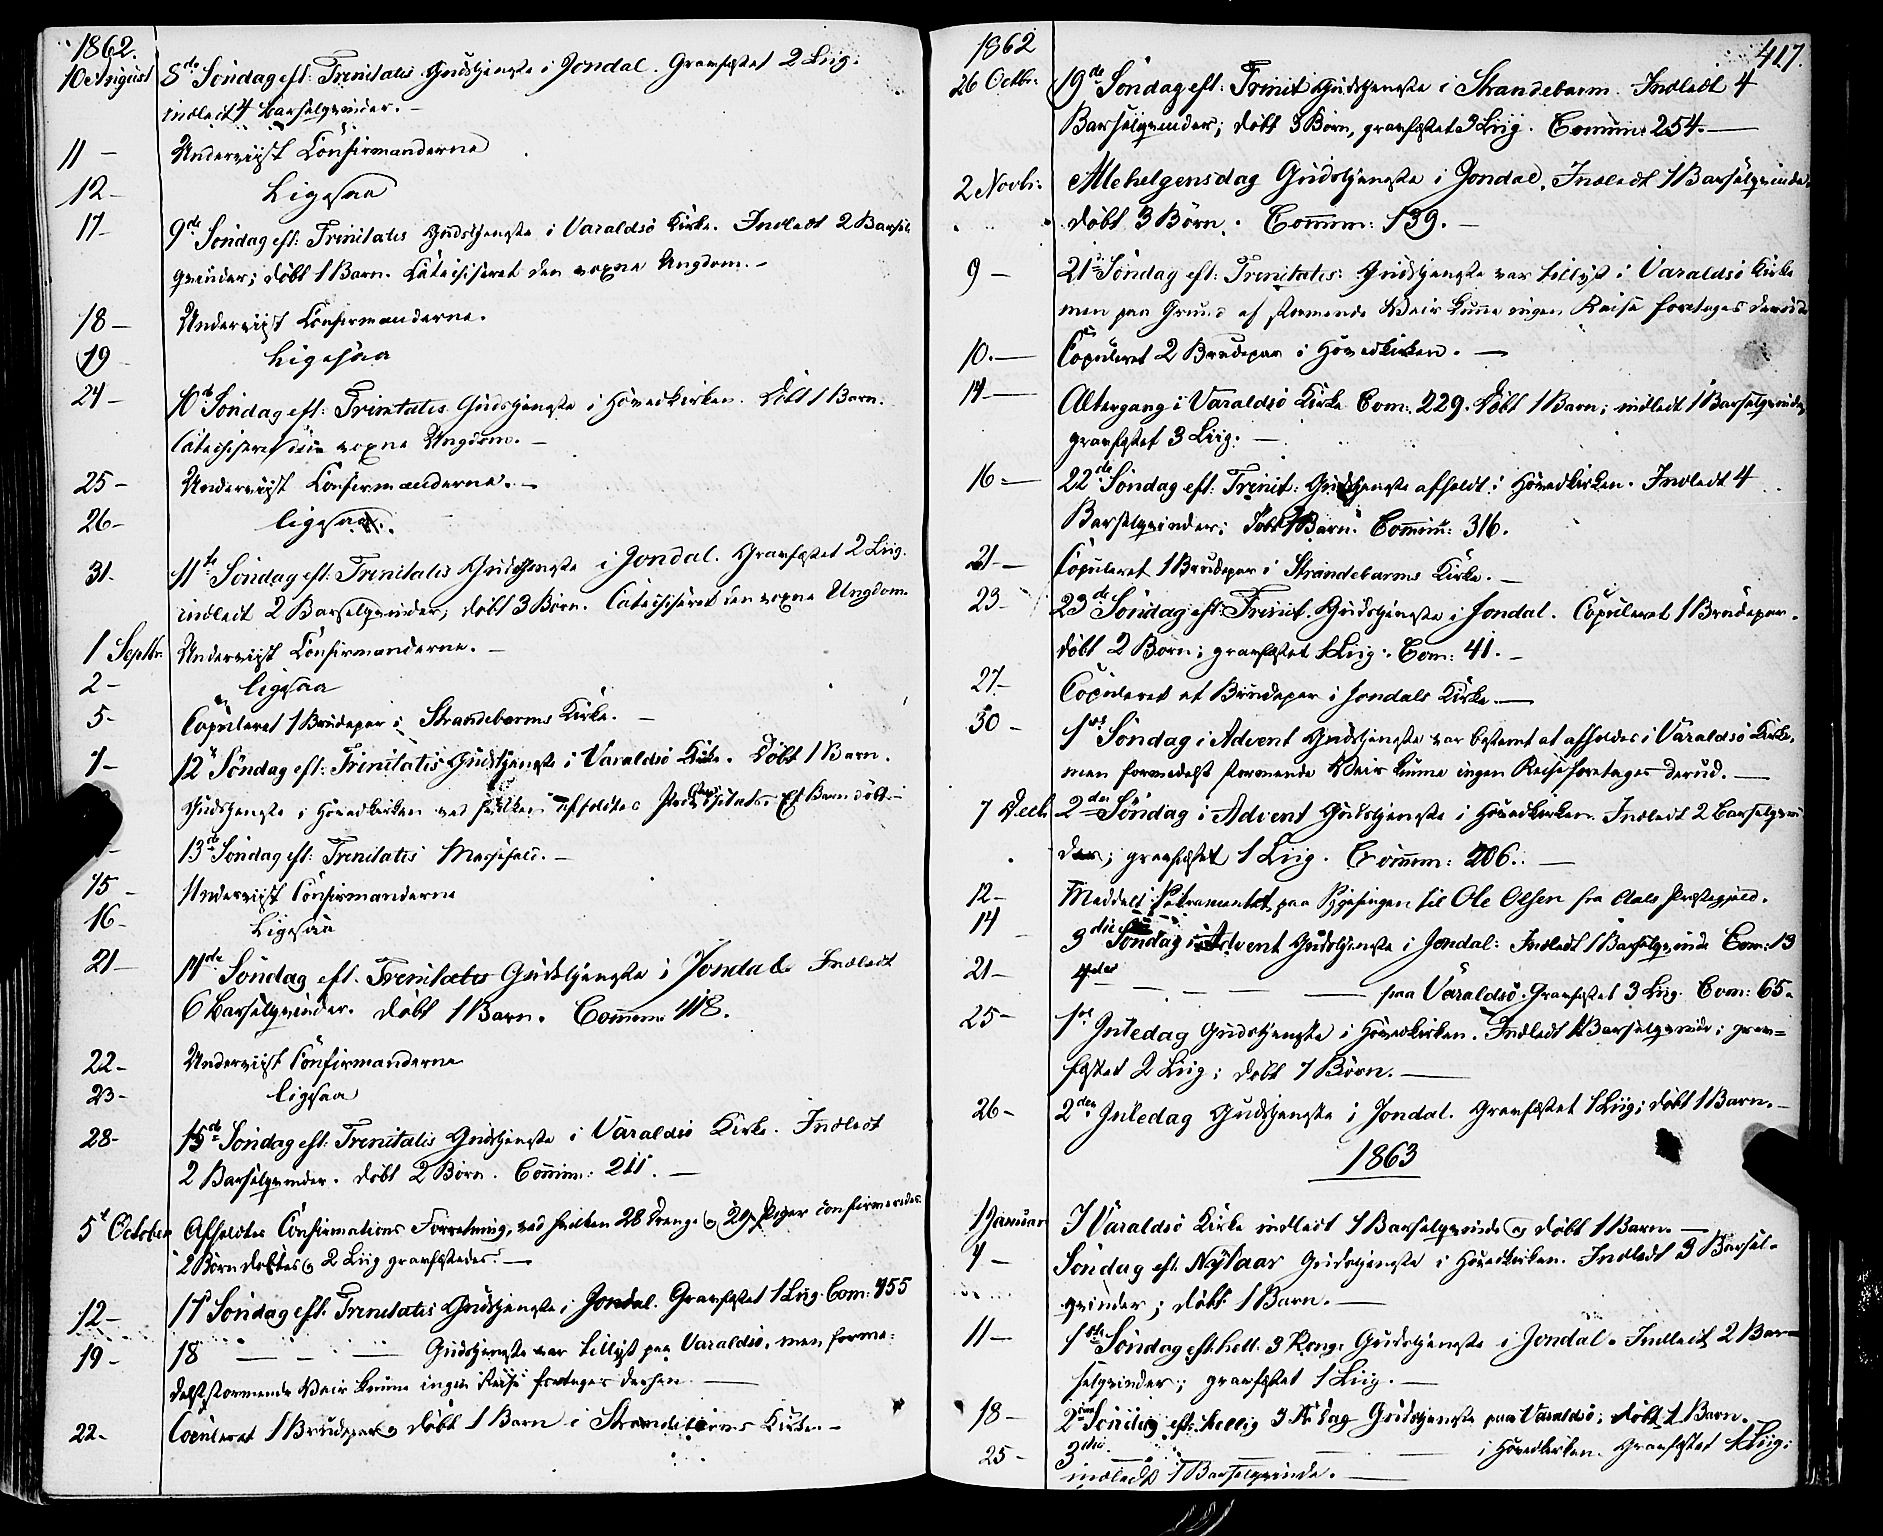 1862.
10 August 8de Søndag eft: Trinitatis Gudstjeneste i Jondal. Gravfæstet 2 Liig.
indledt 4 Barselqvinder. –
11 – Underviist Confirmanderne
12 – Ligesaa
17 – 9de Søndag eft: Trinitatis Gudstjeneste i Varaldsö Kirke. Indledt 2 Barsel
qvinder; døbt 1 Barn. Catechiseret den voxne Ungdom. –
18 – Underviist Confirmanderne.
19 – Ligesaa
24 – 10de Søndag eft: Trinitatis Gudstjeneste i Hovedkirken. Døbt 1 Barn.
Catechiseret den voxne Ungdom. –
25 – Underviist Confirmanderne. –
26 – ligesaa.
31. 11te Søndag eft: Trinitatis Gudstjeneste i Jondal. Gravfæstet 2 Liig.
indledt 2 Barselqvinder, døbt 3 Børn. Catechiseret den voxne Ungdom.
1 Septbr. Underviist Confirmanderne. –
2 – ligesaa
5 – Copuleret 1 Brudepar i Strandebarms Kirke. –
7 – 12te Søndag eft: Trinitatis Gudstjeneste i Varaldsö Kirke. Døbt 1 Barn.
Gudstjeneste i Hovedkirken ved hvilken afholdtes Et Barn døbt
13de Søndag eft: Trinitatis Messefald. –
15 – Underviist Confirmanderne
16 – Ligesaa
21 – 14de Søndag eft. Trinitatis Gudstjeneste i Jondal. Indledt
6 Barselqvinder. Døbt 1 Barn. Comm: 118.
22 – Underviist Confirmanderne
23 – ligesaa
28 – 15de Søndag eft: Trinitatis Gudstjeneste i Varaldsö Kirke. Indledt
2 Barselqvinder. Døbt 2 Børn. Comm: 211. –
5t October Afholdtes Confirmations Forretning, ved hvilken 28 Drenge og 29 Piger confirmeredes.
2 Børn døbtes og 2 Liig gravfæstedes. –
12 – 17de Søndag eft. Trinitatis Gudstjeneste i Jondal. Gravfæstet 1 Liig. Com: 155
19 – 18 – – – Gudstjeneste var tillyst paa Varaldsö, men forme-
delst stormende Veir kunne ingen Reise foretages derhen. –
22 – Copuleret 1 Brudepar og døbt 1 Barn i Strandebarms Kirke. –
417.
1862
26 Octbr: 19de Søndag eft: Trinit Gudstjeneste i Strandebarm. Indledt 4
Barselqvinder; døbt 3 Børn, gravfæstet 3 Liig. Comm: 254. –
2 Novbr: Allehelgensdag Gudstjeneste i Jondal. Indledt 1 Barselqvinde.
døbt 3 Børn. Comm: 139. –
9 – 21de Søndag eft: Trinitatis: Gudstjeneste var tillyst i Varaldsö Kirke
men paa Grund af stormende Veir kunne ingen Reise foretages derud
10. – Copuleret 2 Brudepar i Hovedkirken. –
14 – Altergang i Varaldsö Kirke. Com: 229. Døbt 1 Barn; indledt 1 Barselqvinde,
gravfæstet 3 Liig. –
16 – 22de Søndag eft: Trinit: Gudstjeneste afholdt i Hovedkirken. Indledt 4
Barselqvinder; døbt 1 Barn. Comm: 316.
21 – Copuleret 1 Brudepar i Strandebarms Kirke. –
23 – 23de Søndag eft: Trinit. Gudstjeneste i Jondal. Copuleret 1 Brudepar.
døbt 2 Børn; gravfæstet 1 Liig. Com: 41. –
27 – Copuleret et Brudepar i Jondals Kirke. –
30 – 1ste Søndag i Advent Gudstjeneste var bestemt at afholdes i Varaldsö Kirke,
men formedelst stormende Veir kunne ingen Reise foretages derud. –
7 Decb 2den Søndag i Advent Gudstjeneste i Hovedkirken. Indledt 2 Barselqvin-
der; gravfæstet 1 Liig. Comm: 206. –
12 – Meddelt Sakramentet paa Sygesengen til Ole Olsen fra Aals Præstegjeld.
14 – 3die Søndag i Advent Gudstjeneste i Jondal: Indledt 1 Barselqvinde Com: 13
21 – 4de – – – paa Varaldsö. Gravfæstet 3 Liig. Com: 65.
25 – 1ste Juledag Gudstjeneste i Hovedkirken. Indledt 1 Barselqvinde; grav-
fæstet 2 Liig; døbt 7 Børn. –
26 – 2den Juledag Gudstjeneste i Jondal. Gravfæstet 1 Liig; døbt 1 Barn. –
1863
1 Januar I Varaldsö Kirke indledt 1 Barselqvinde og døbt 1 Barn. –
4 – Søndag eft. Nytaar Gudstjeneste i Hovedkirken. Indledt 3 Barsel-
qvinder; døbt 1 Barn. –
11 – 1ste Søndag eft. hell. 3 Kong: Gudstjeneste i Jondal. Indledt 2 Bar-
selqvinder; gravfæstet 1 Liig. –
18 – 2den Søndag eft. hellig 3 K: dag Gudstjeneste paa Varaldsö; døbt 1 Barn.
25 – 3die – – – i Hovedkirken. Gravfæstet 1 Liig;
indledt 1 Barselqvinde. –